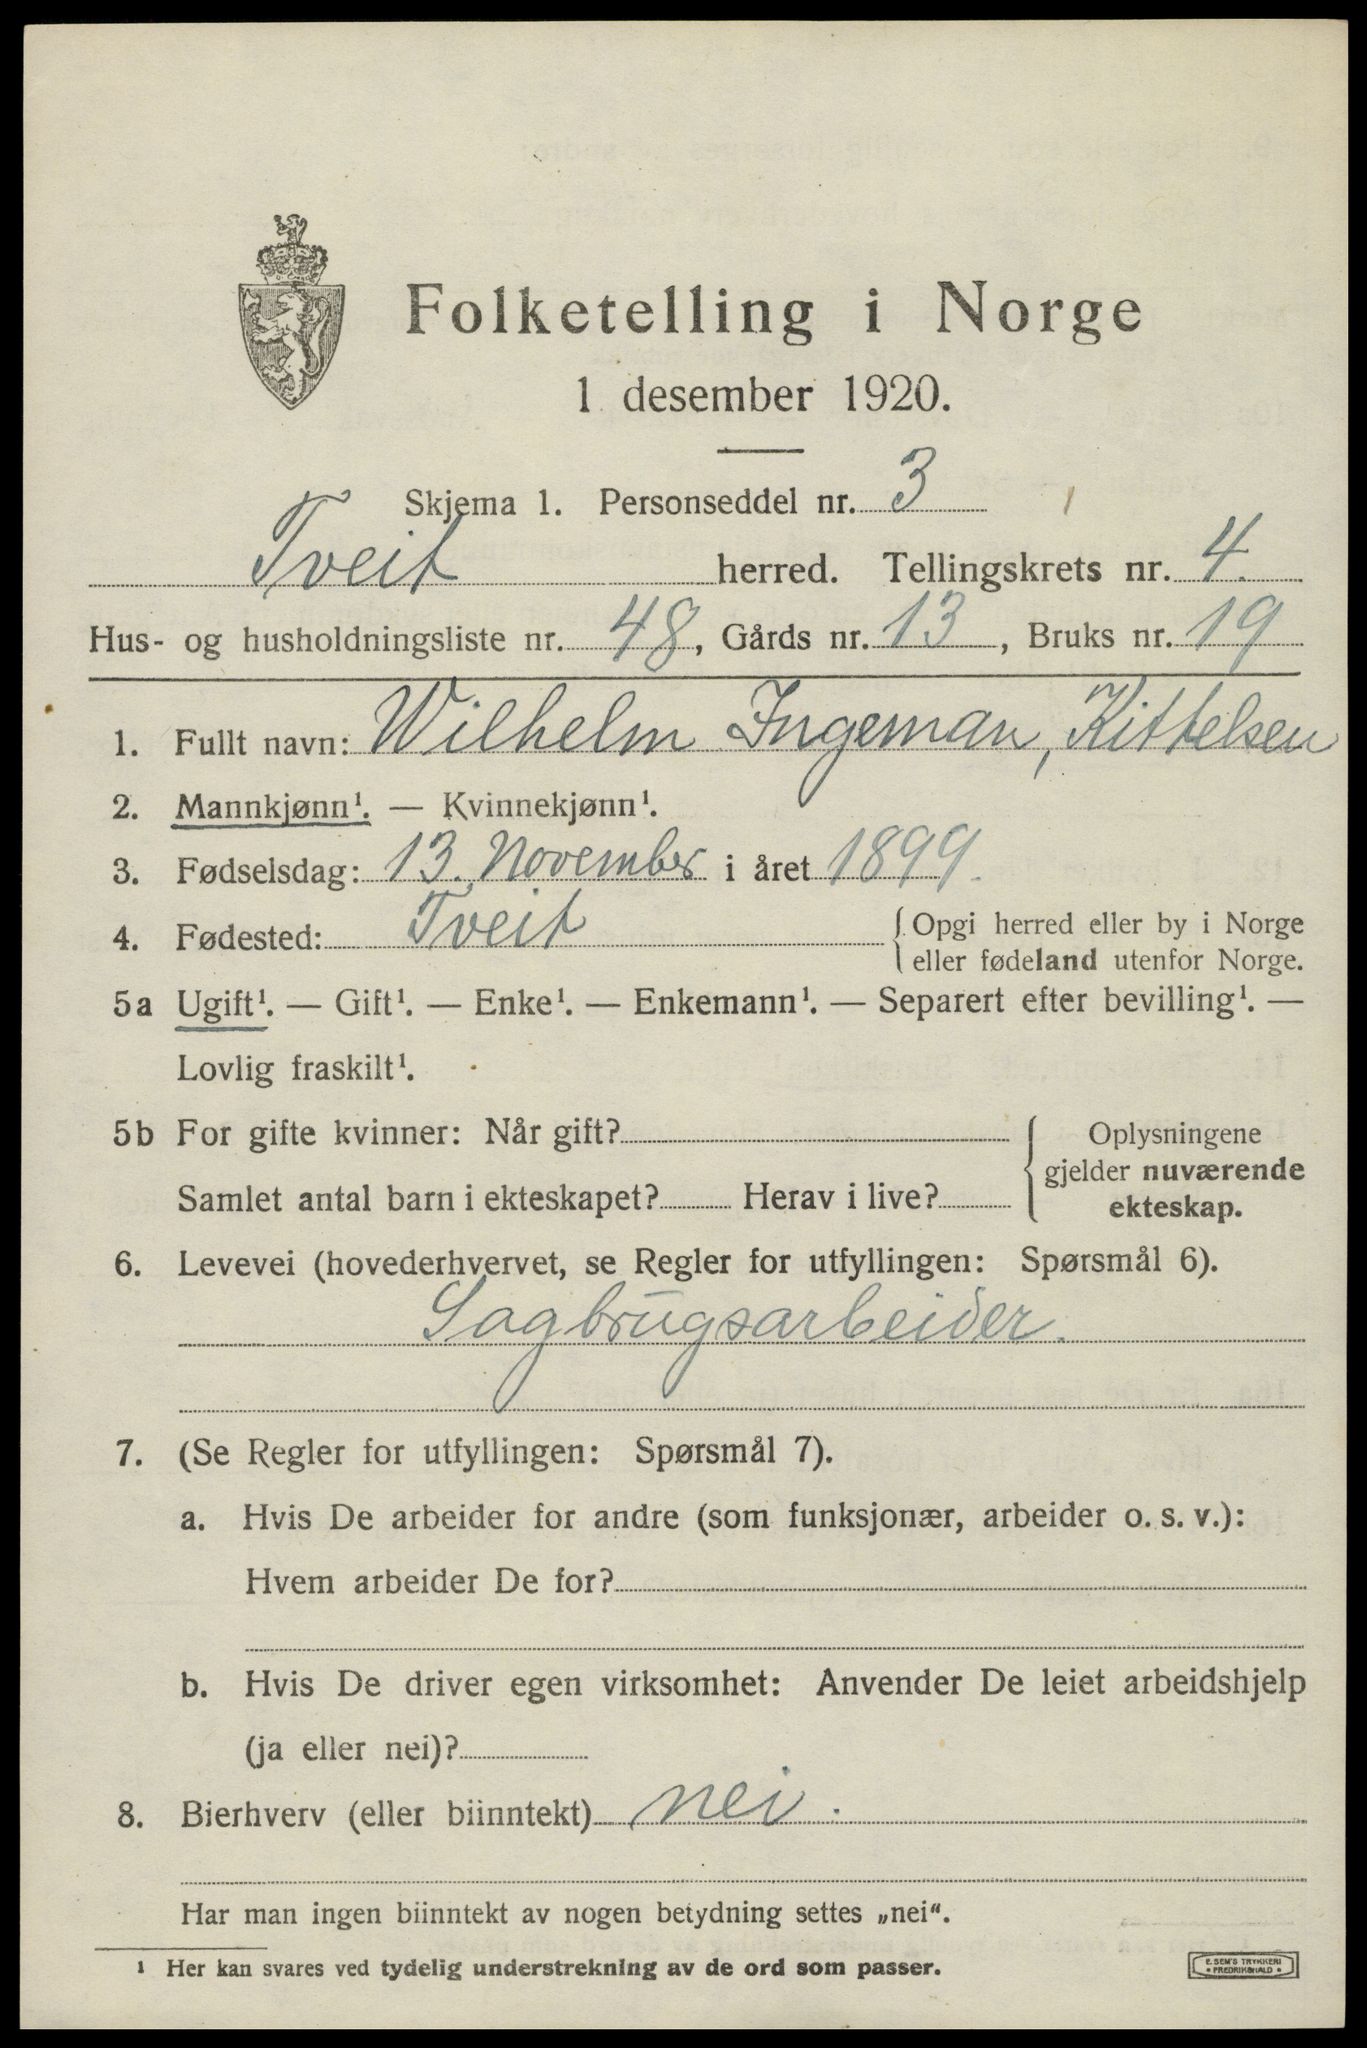 Folketelling i Norge
1 desember 1920.
Skjema 1. Personseddel nr. 3
Tveit herred. Tellingskrets nr. 4.
Hus- og husholdningsliste nr. 48, Gårds nr. 13, Bruks nr. 19
1. Fullt navn: Wilhelm Ingeman, Kittelsen
2. Mannkjønn¹. — Kvinnekjønn¹.
3. Fødselsdag: 13. November i året 1899.
4. Fødested: Tveit {Opgi herred eller by i Norge
eller fødeland utenfor Norge.
5a Ugift¹. — Gift¹. — Enke¹. — Enkemann¹. — Separert efter bevilling¹. —
Lovlig fraskilt¹.
5b For gifte kvinner: Når gift?
Samlet antal barn i ekteskapet? Herav i live?
Oplysningene
gjelder nuværende
ekteskap.
6. Levevei (hovederhvervet, se Regler for utfyllingen: Spørsmål 6).
Sagbrugsarbeider.
7. (Se Regler for utfyllingen: Spørsmål 7).
a. Hvis De arbeider for andre (som funksjonær, arbeider o. s. v.):
Hvem arbeider De for?
b. Hvis De driver egen virksomhet: Anvender De leiet arbeidshjelp
(ja eller nei)?
8. Bierhverv (eller biinntekt) nei.
Har man ingen biinntekt av nogen betydning settes „nei“.
¹ Her kan svares ved tydelig understrekning av de ord som passer.
E. SEM'S TRYKKERI
• FREDRIKSHALD •